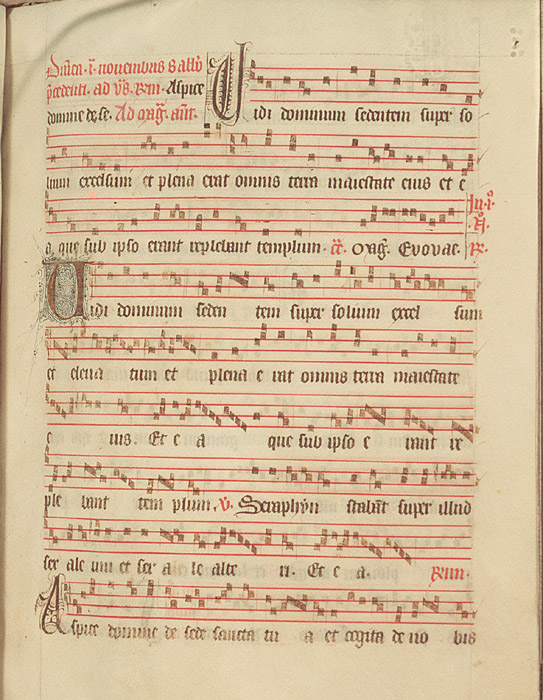 Dnica · i · novembris sabbo
precedenti · ad vs · Rm · Aspice
domine de se · Ad mag · ant ·
Vidi dominum sedentem super so
lium excelsum et plena erat omnis terra maiestate eius et e
a que sub ipso erant replebant templum · ps · Mag · Evovae · In · i° · n° · R ·
Vidi dominum seden tem super solium excel sum
et eleva tum et plena e rat omnis terra maiestate
e ius Et e a que sub ipso e rant re
ple bant tem plum · V · Seraphyn stabant super illud
sex ale uni et sex a le alte ri · Et e a · Rm ·
Aspice domine de sede sancta tu a et cogita de no bis